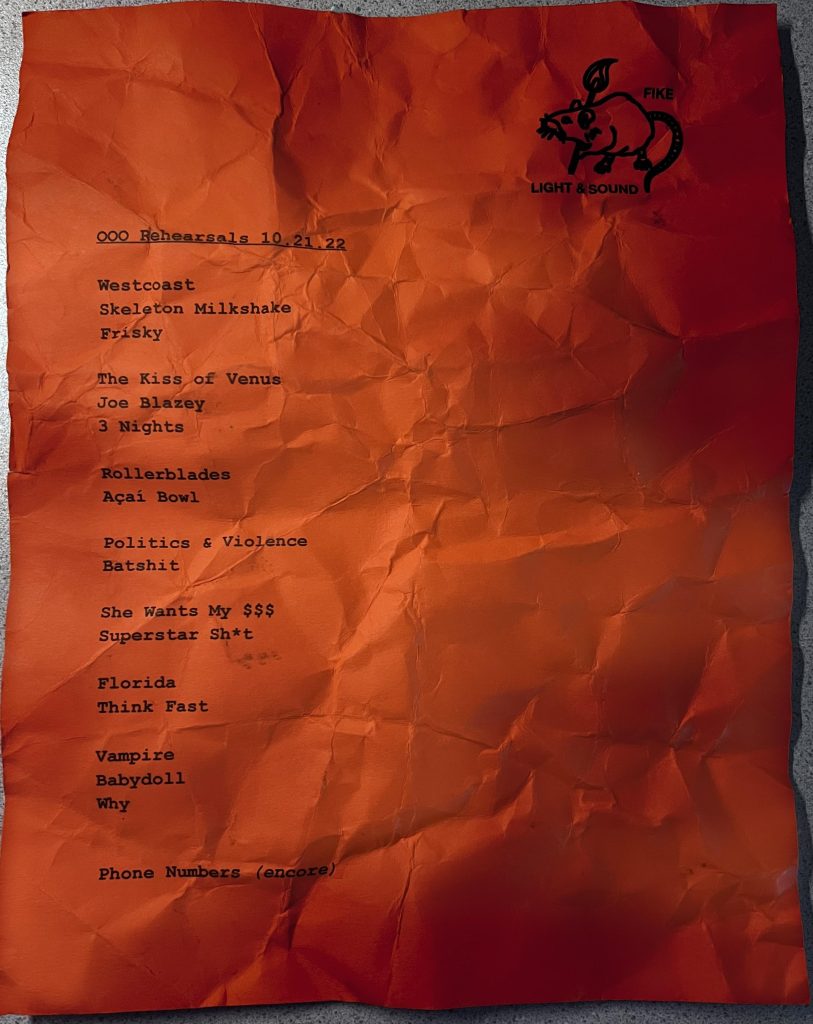 FIKE
LIGHT & SOUND
OOO Rehearsals 10.21.22
Westcoast
Skeleton Milkshake
Frisky
The Kiss of Venus
Joe Blazey
3 Nights
Rollerblades
Açaí Bowl
Politics & Violence
Batshit
She Wants My $$$
Superstar Sh*t
Florida
Think Fast
Vampire
Babydoll
Why
Phone Numbers (encore)